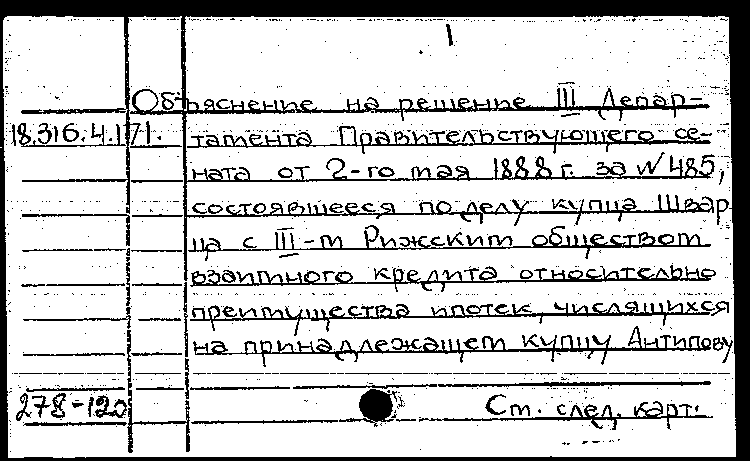 1
Объяснение на решение III Депар-
18.316.4.171. тамента Правительствующего се-
ната от 2-го мая 1888 г. за N 485,
состоявшееся по делу купца Швар
ца с III-м Рижским обществом
взаимного кредита относительно
преимущества ипотек, числящихся
на принадлежащем купцу Антипову
278-120 См. след. карт.